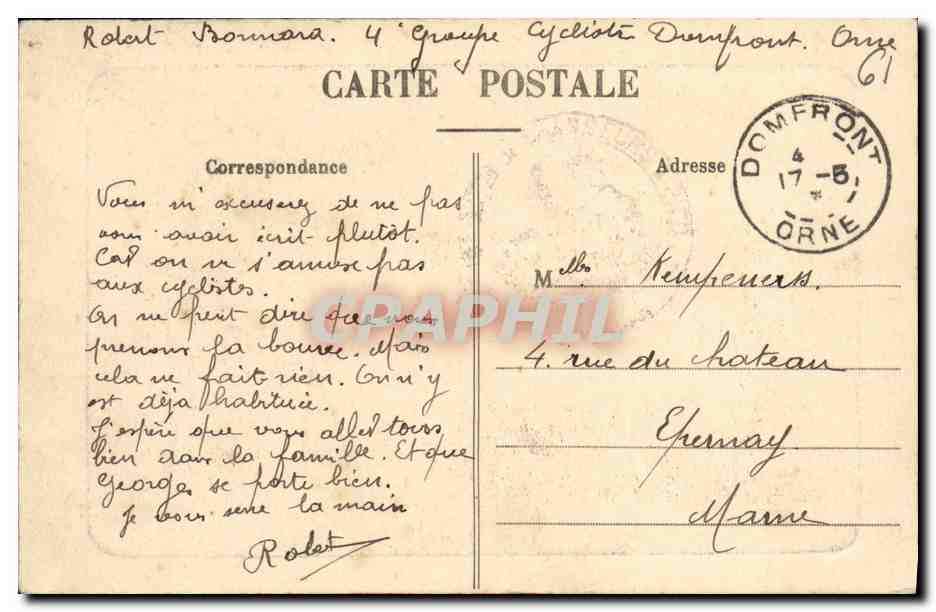 Robert Bonnard. 4e Groupe Cycliste Domfront. Orne
61
CARTE POSTALE
Correspondance
Vous m'excuserez de ne pas
vous avoir écrit plutôt.
Car on ne s'amuse pas
aux cyclistes.
On ne peut dire que nous
prenons la bourre. Mais
cela ne fait rien. On n'y
est déja habitué.
J'espère que vous allez tous
bien dans la famille. Et que
Georges se porte bien.
Je vous serre la main
Robert
Adresse
DOMFRONT
4
17 -5
*
ORNE
Melles Kempeners.
4. rue du chateau
Epernay
Marne
CPAPHIL